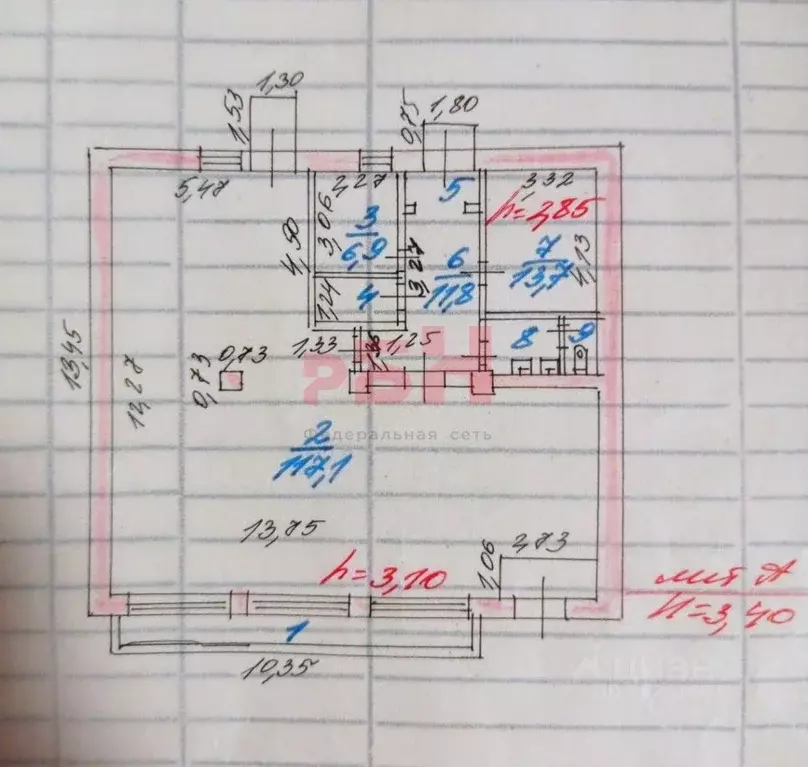 1,30
1,53
0,75
1,80
5,47
2,27
3,32
5
h=2,85
3,06
3
6,9
4,50
3,27
6
11,8
7
13,7
4,13
1,24
4
8
9
13,45
1,33
1,25
0,73
0,73
РБН
Федеральная сеть
2
117,1
13,75
h=3,10
1,06
2,73
лит А
H=3,40
1
10,35